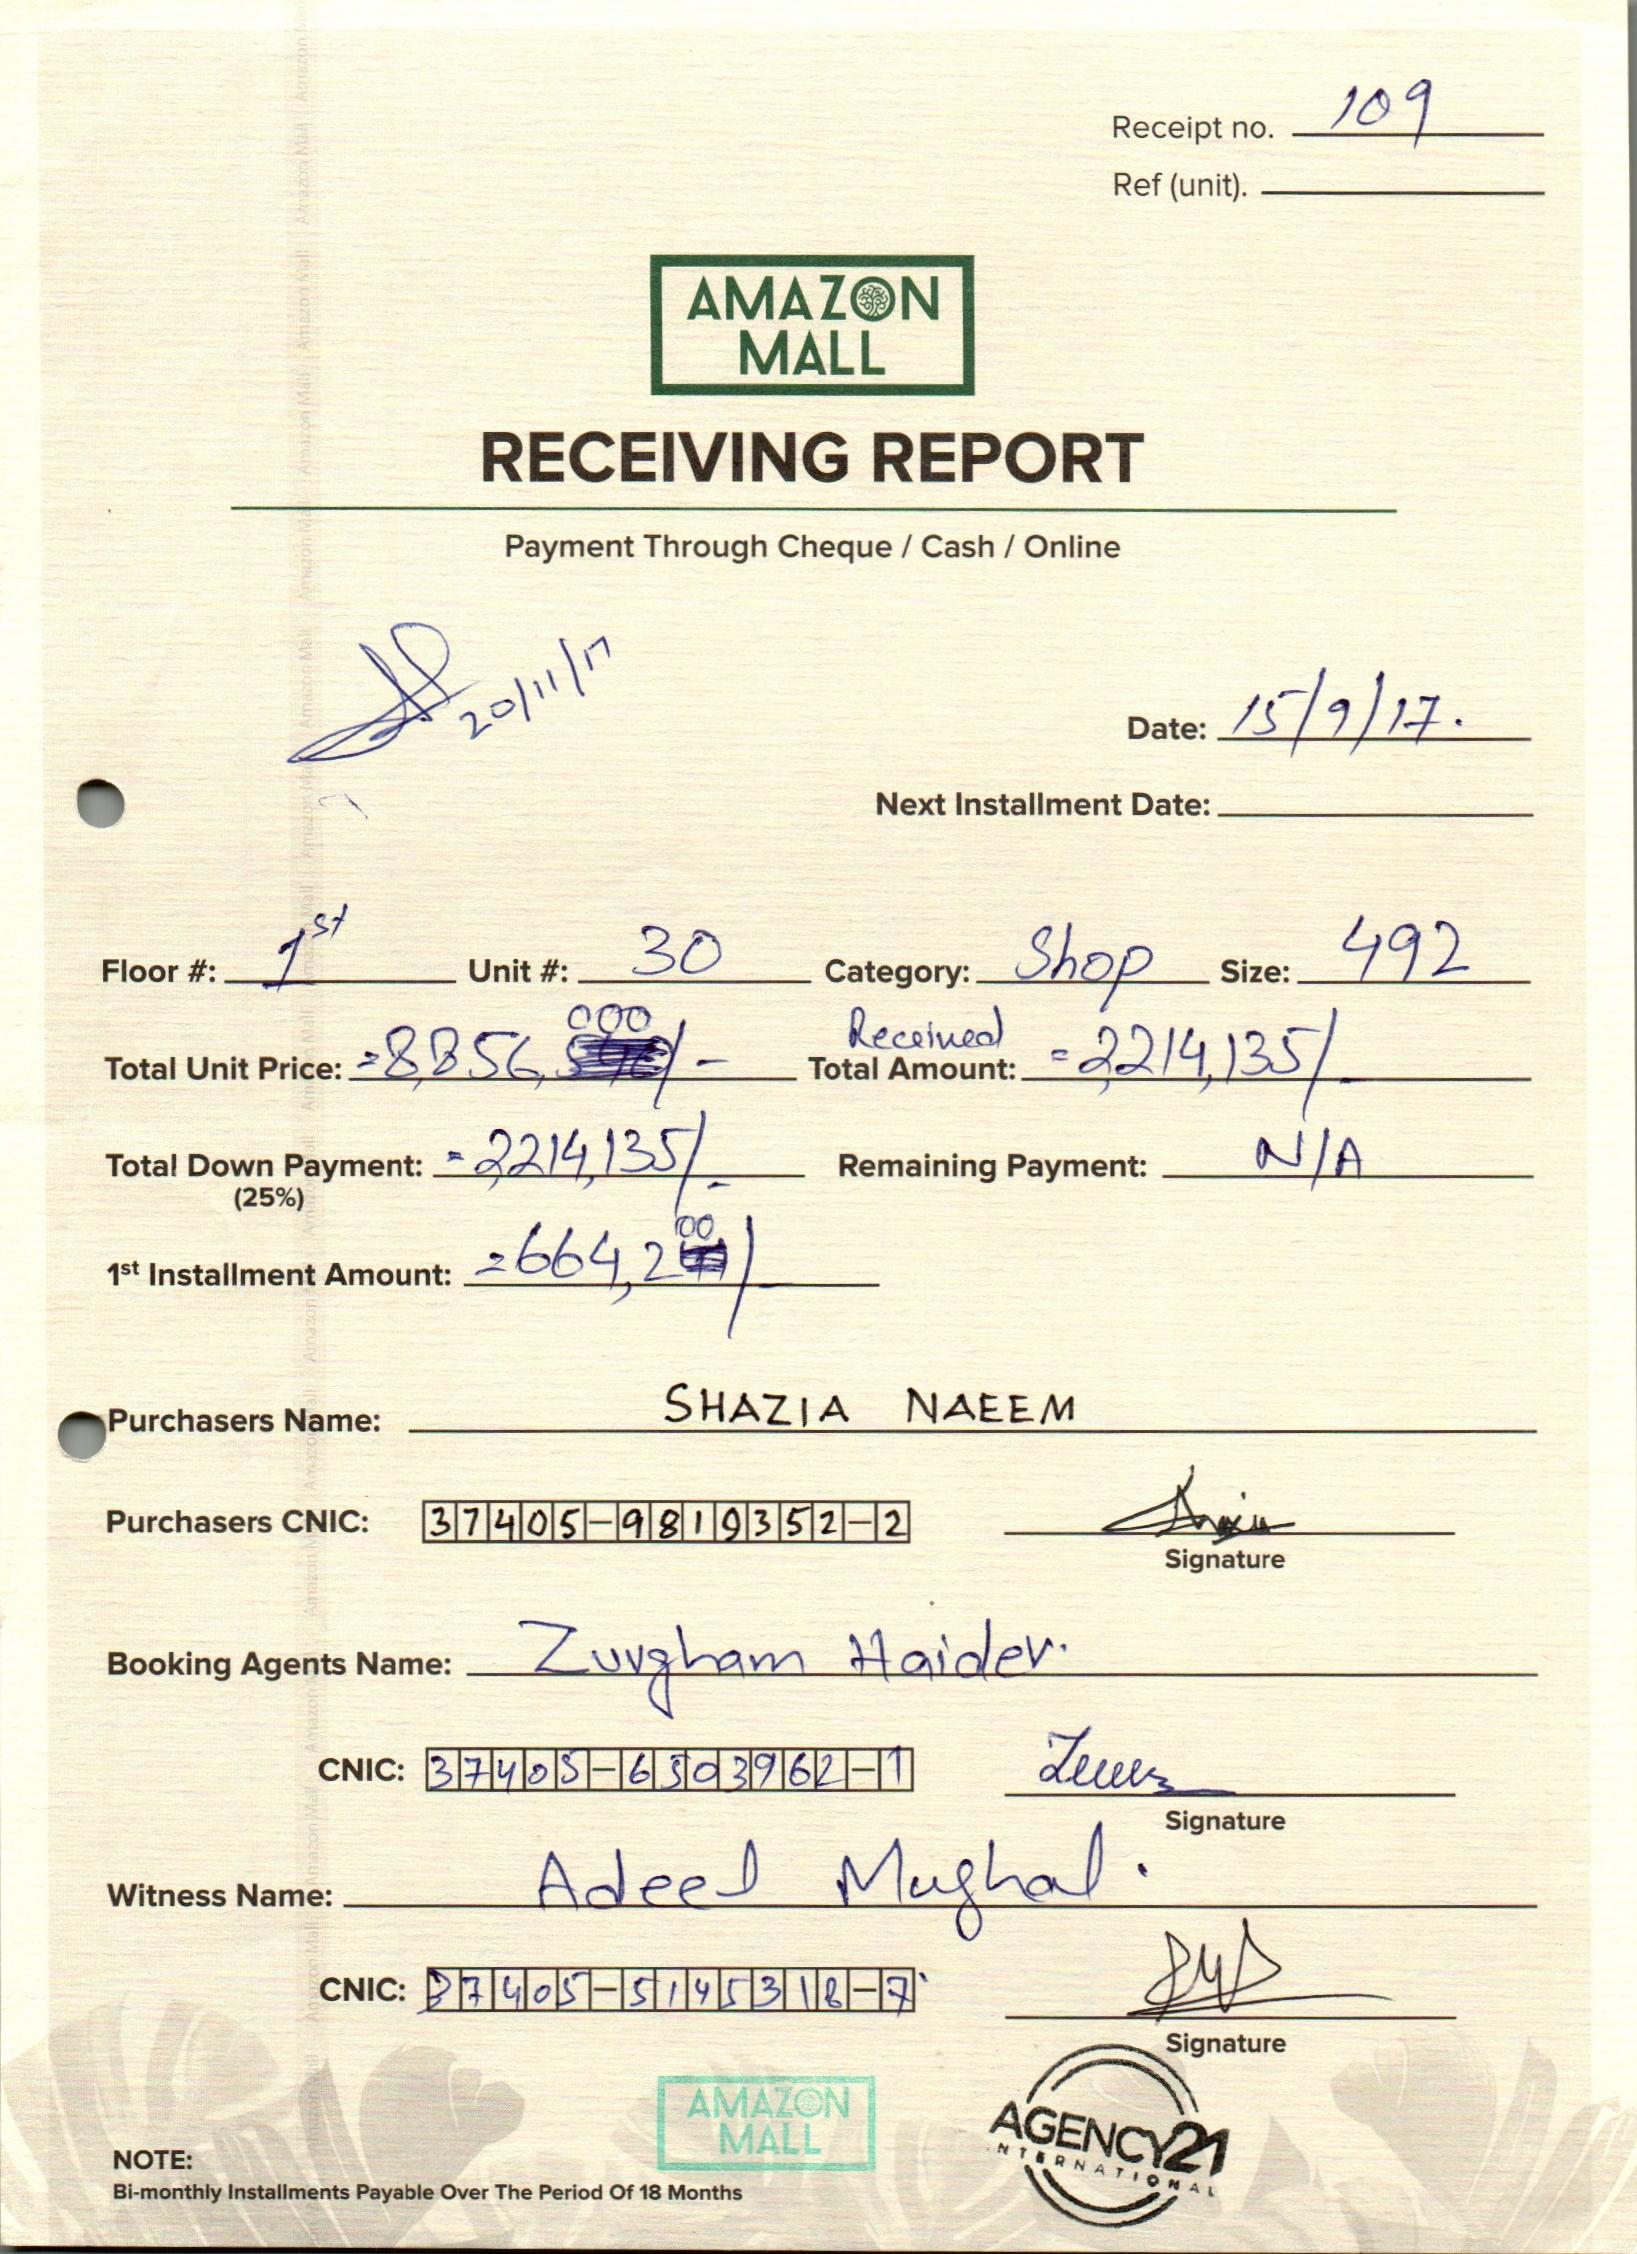 Receipt no. 109
Ref (unit).
AMAZON
MALL
RECEIVING REPORT
Payment Through Cheque / Cash / Online
20/11/17
Date: 15/9/17.
Next Installment Date:
Floor #: 1st Unit #: 30 Category: Shop Size: 492
Total Unit Price: =8,856,000/- Received Total Amount: =2,214,135/-
Total Down Payment: =2,214,135/- Remaining Payment: N/A
(25%)
1st Installment Amount: =664,200/-
Purchasers Name: SHAZIA NAEEM
Purchasers CNIC: 37405-9819352-2
Signature
Booking Agents Name: Zurgham Haider.
CNIC: 37405-6303962-1
Signature
Witness Name: Adeel Mughal.
CNIC: 37405-5145318-7
Signature
AMAZON
MALL
AGENCY21
INTERNATIONAL
NOTE:
Bi-monthly Installments Payable Over The Period Of 18 Months